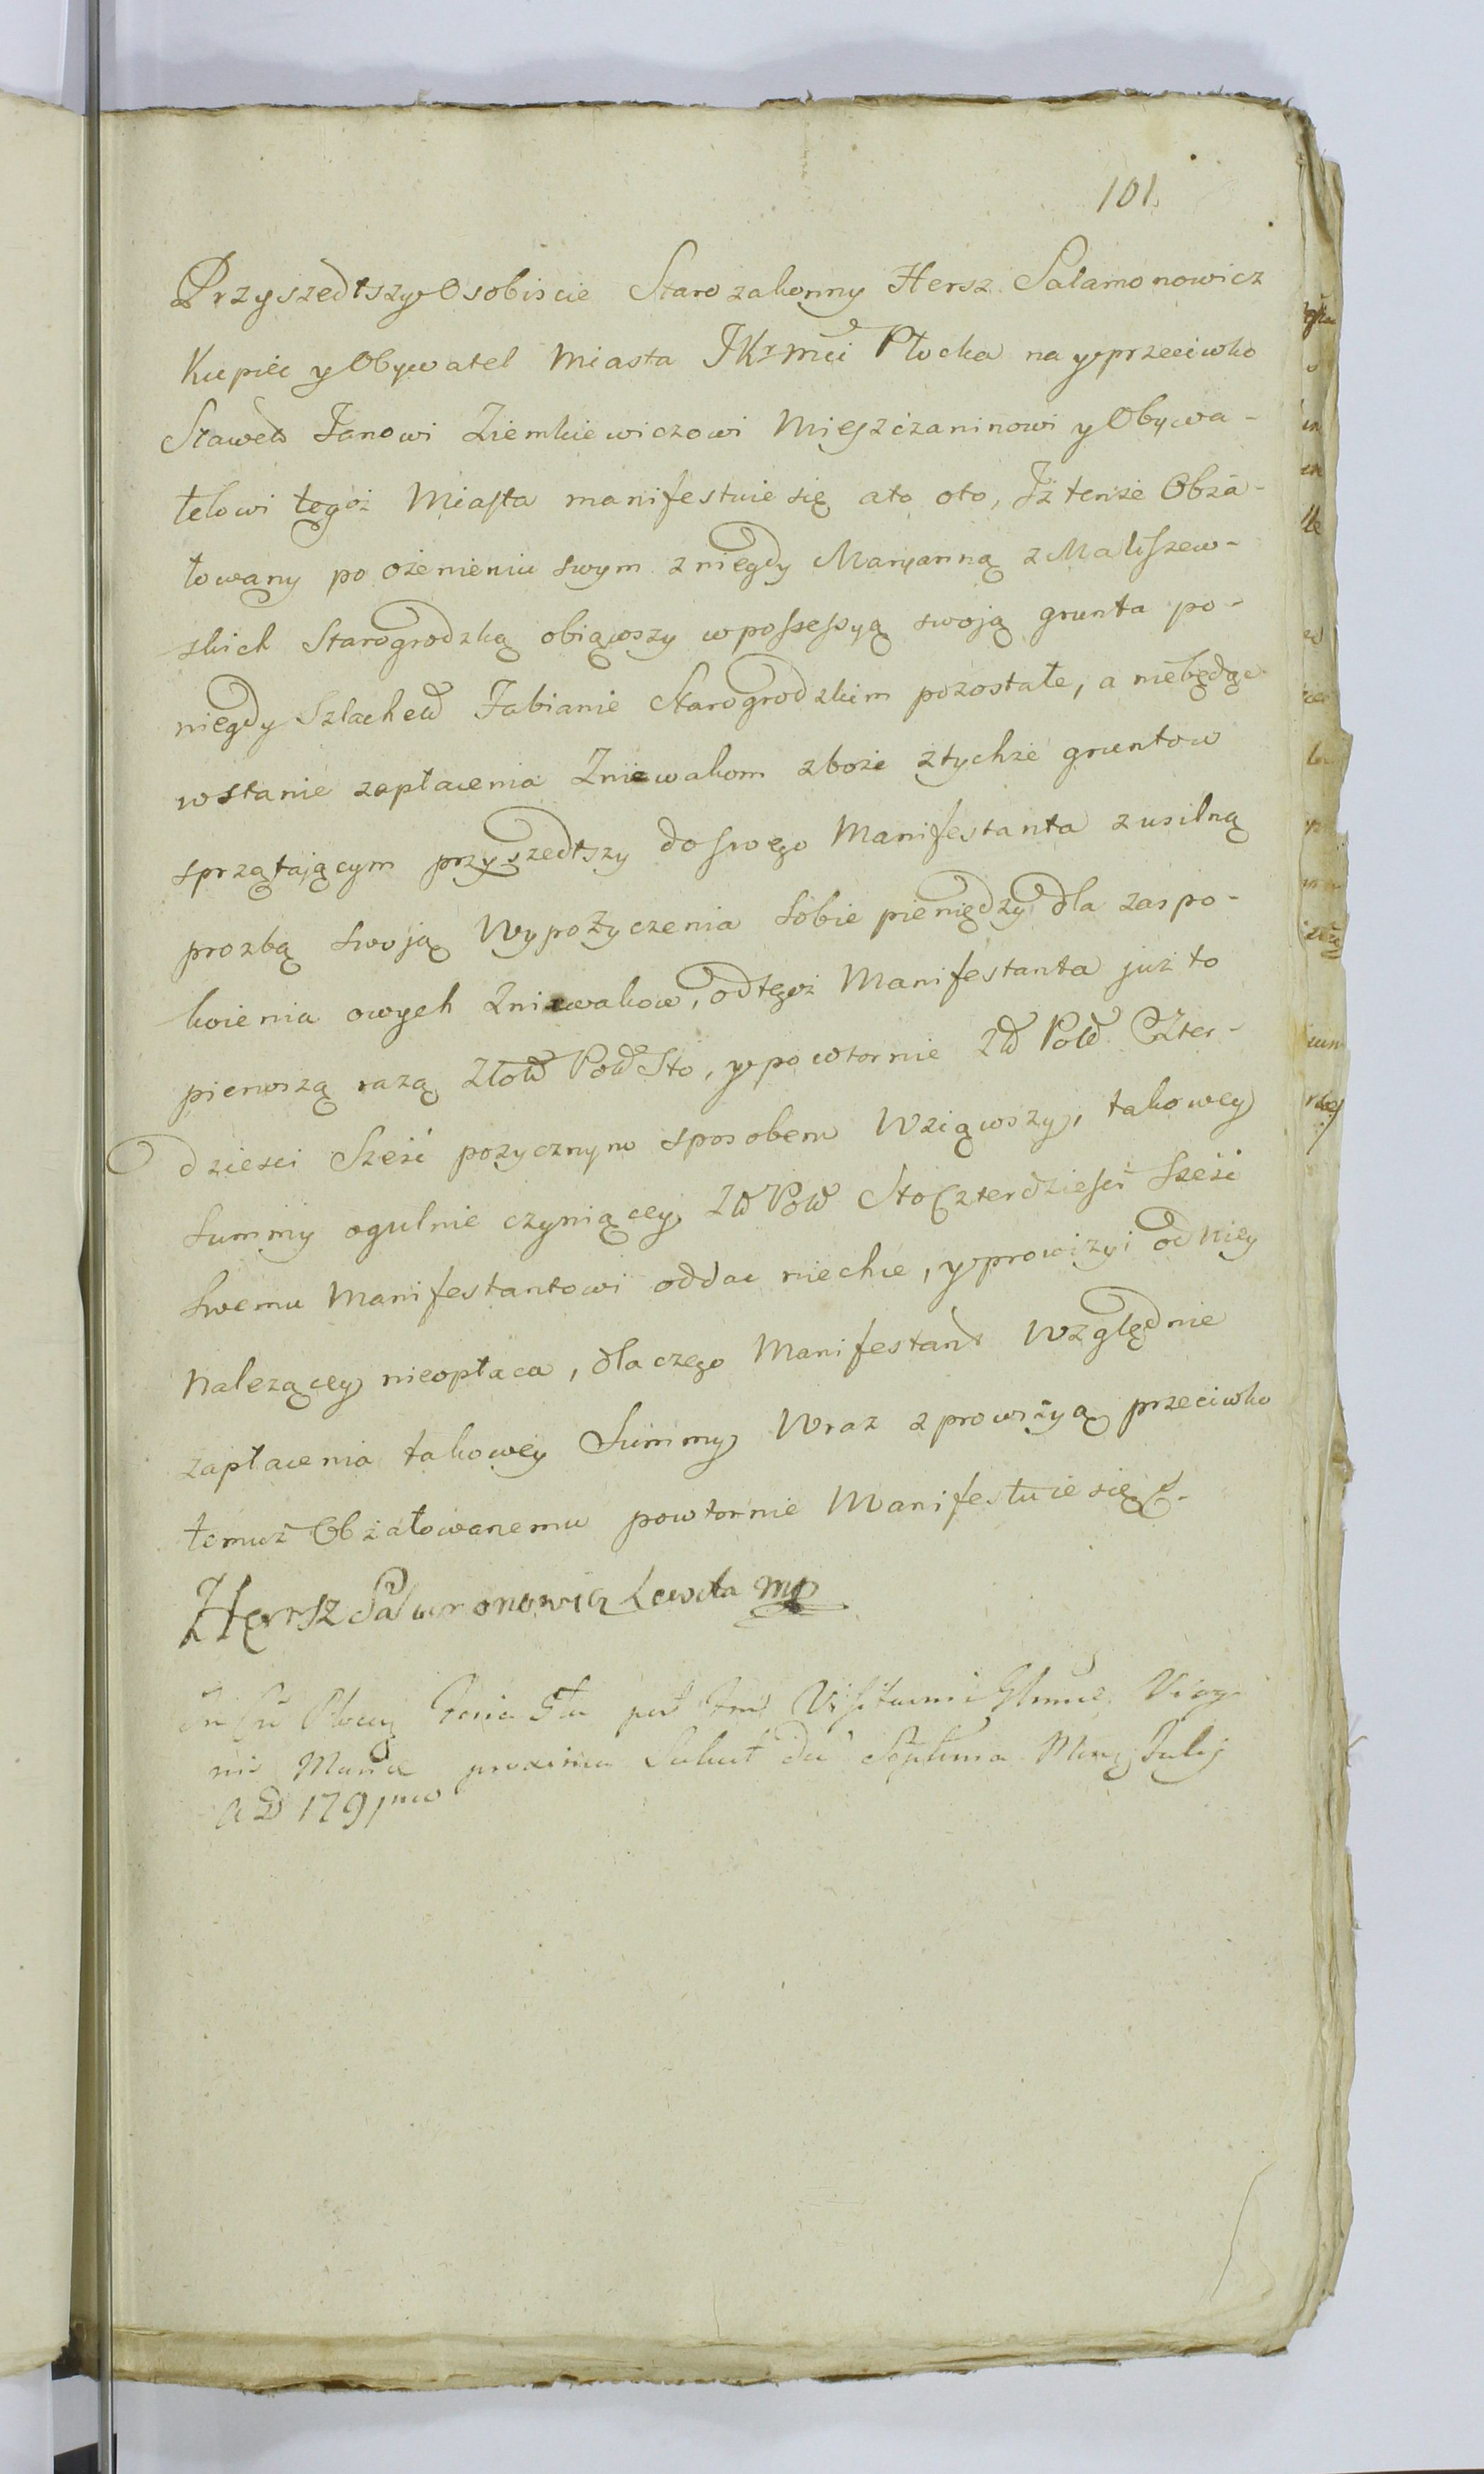 101.
Przyszedłszy Osobiscie Starozakonny Hersz Salamonowicz
Kupiec y Obywatel Miasta JKrmci Płocka na y przeciwko
Sławet Janowi Ziemkiewiczowi Mieszczaninowi y Obywa-
telowi tegoż Miasta manifestuie się ato oto, Iż tenże Obża-
łowany po ożenieniu swym z niegdy Maryanną z Maliszew-
skich Starogrodzką obiąwszy w possessyą swoją grunta po-
niegdy Szlachet Fabianie Starogrodzkim pozostałe, a niebędąc
wstanie zapłacenia Zniewakom zboże ztychże gruntow
sprzątającym przyszedłszy do swego Manifestanta z usilną
prozbą swoją Wypożyczenia sobie pieniędzy dla zaspo-
koienia owych Zniwakow, od tegoż Manifestanta już to
pierwszą razą Złot Pol Sto, y powtornie Zł Pol Czter-
dziesci Sześć pozycznym sposobem Wziąwszy, takowey
Summy ogulnie czyniącey Zł Pol Sto Czterdzieści Sześć
Swemu Manifestantowi oddac niechce, y prowizyi od Niey
Nalezącey nieopłaca, dlaczego Manifestant Względnie
zapłacenia takowey Summy Wraz z prowizyą przeciwko
temuż Obżałowanemu powtornie Manifestuie się
Hersz Salamonowicz Lewita mp
Visitaonis Virgi
nis Mariæ proxima Septima Julij
A D 1791mo